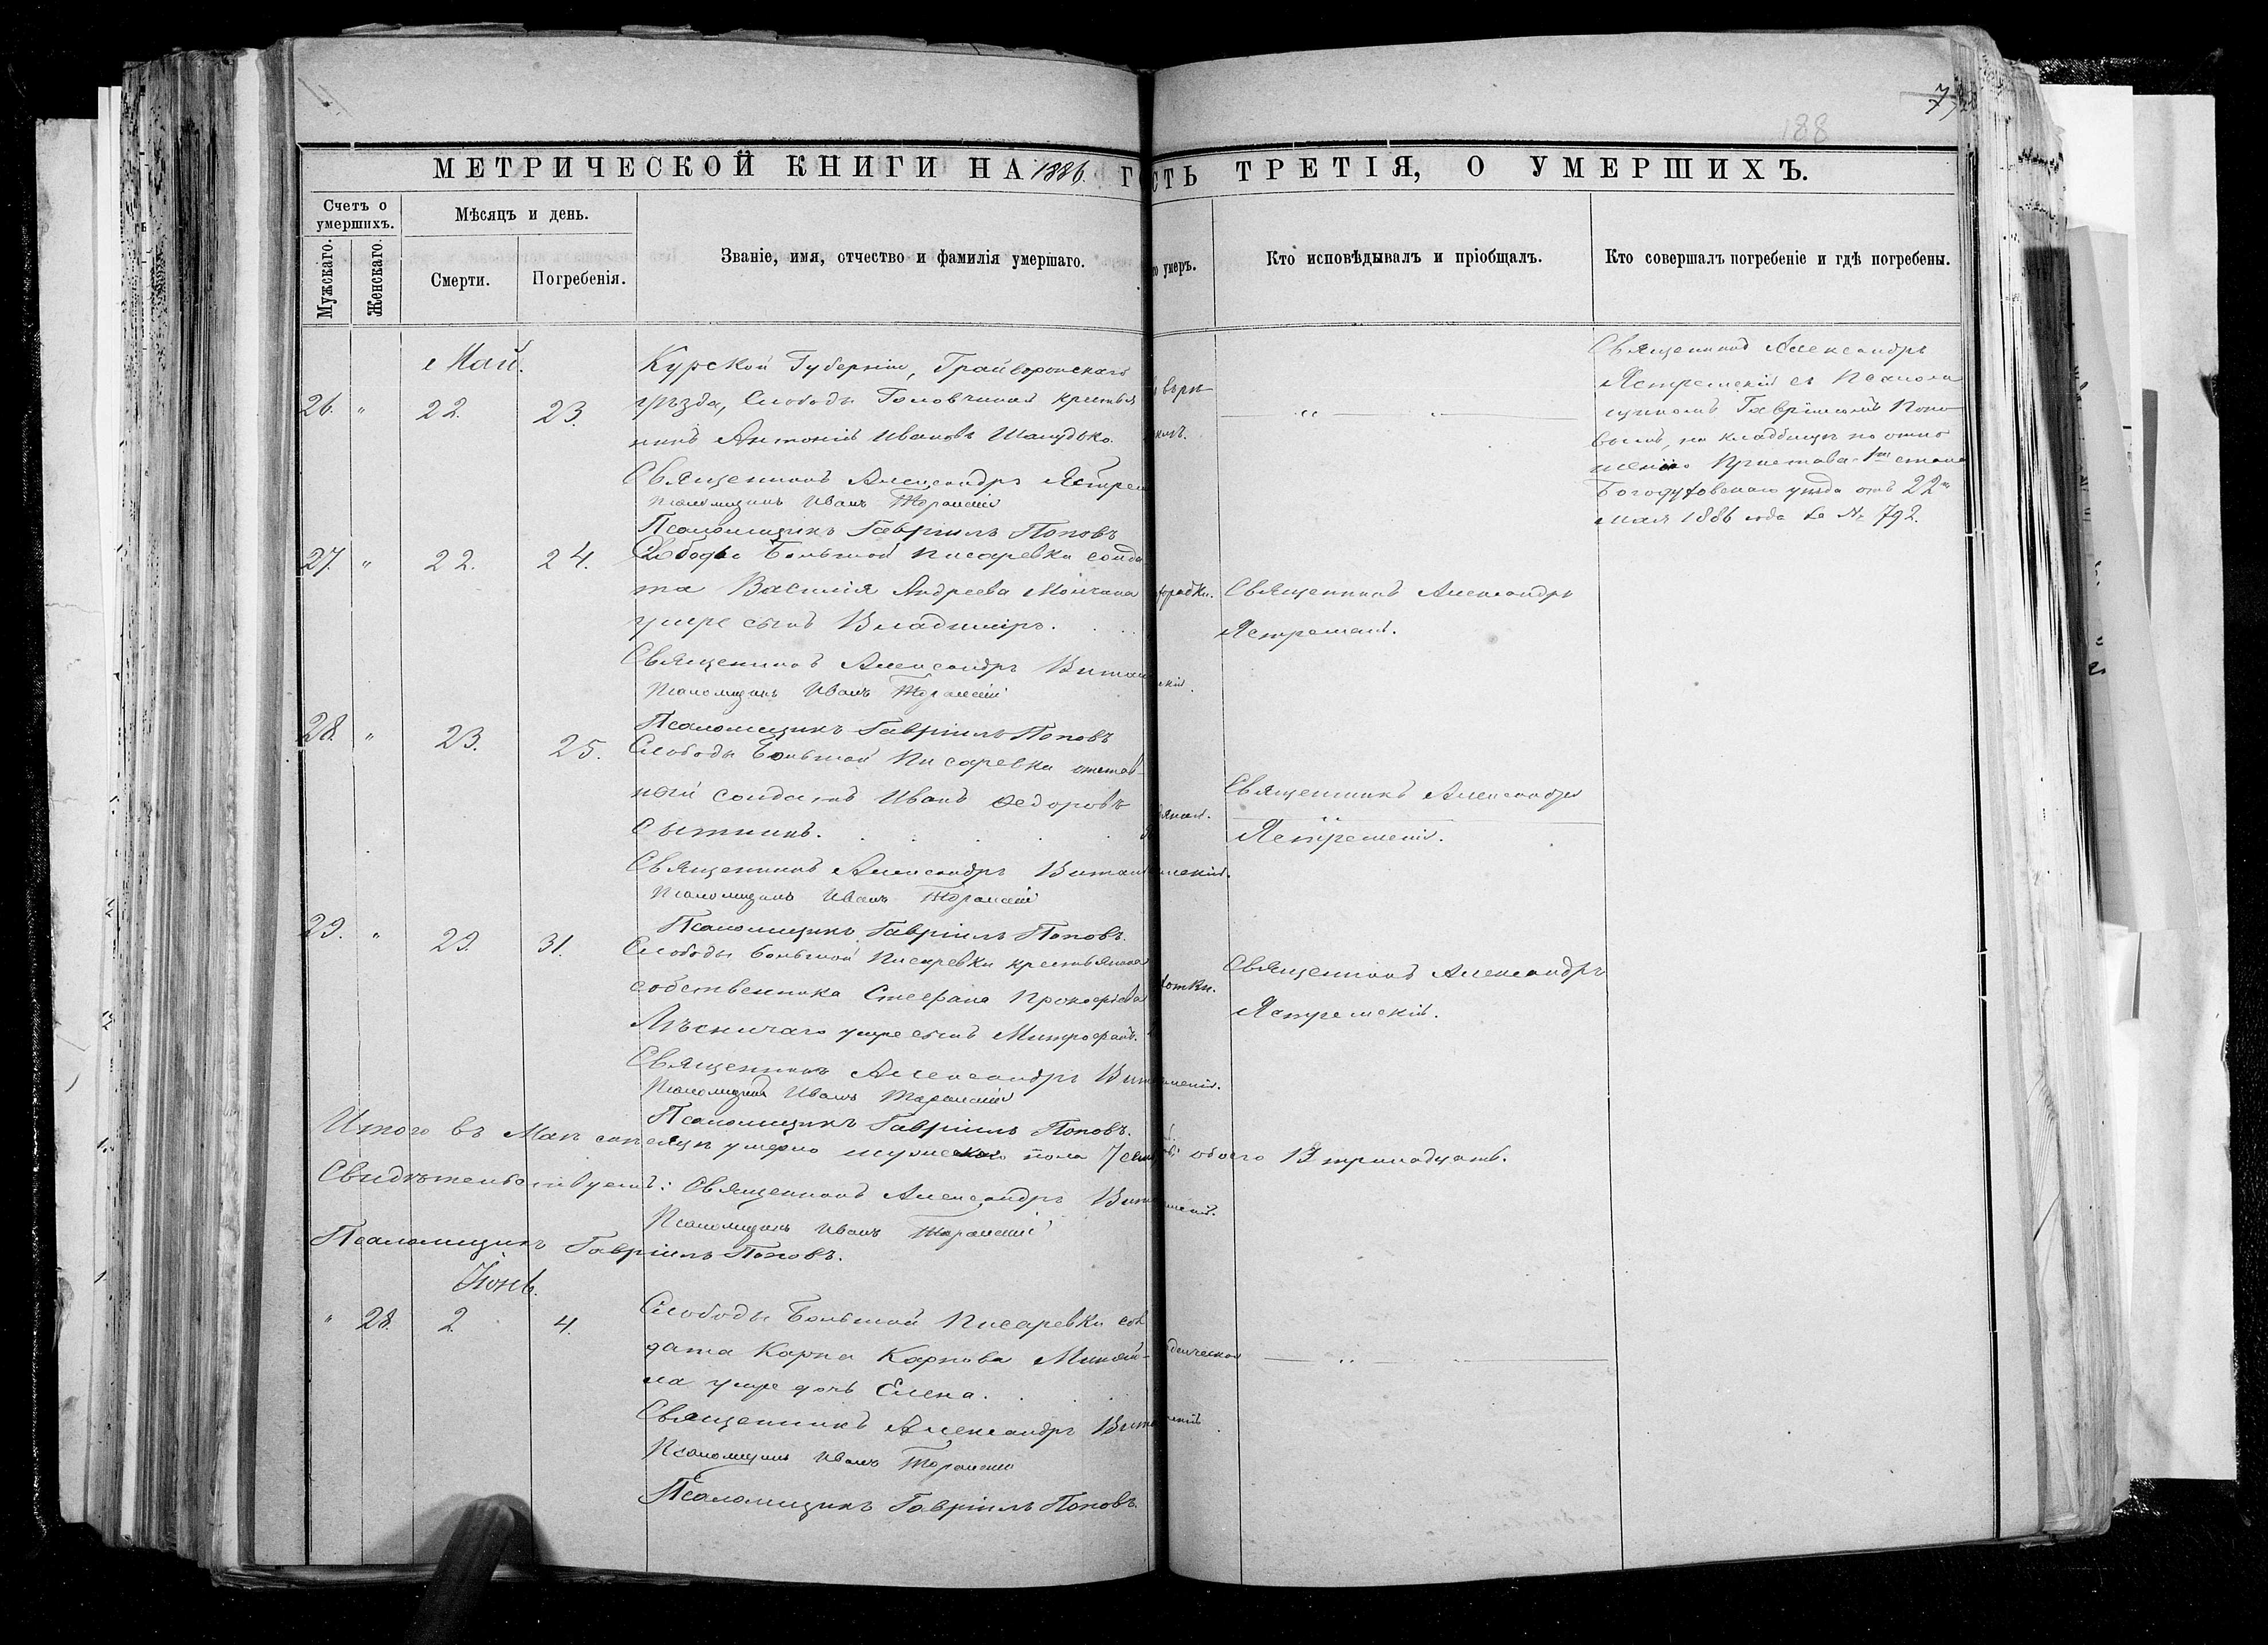 188
МЕТРИЧЕСКОЙ КНИГИ НА 1886 Г
СТЬ ТРЕТІЯ, О УМЕРШИХЪ.
Счетъ о умершихъ.
Мужскаго.
Женскаго.
Мѣсяцъ и день.
Смерти.
Погребенія.
Званіе, имя, отчество и фамилія умершаго.
го умеръ.
Кто исповѣдывалъ и пріобщалъ.
Кто совершалъ погребеніе и гдѣ погребены.
Май.
26. " 22. 23.
Курской Губерніи, Грайворонскаго
уѣзда, Слободы Головчиной крестья
нинъ Антоній Ивановъ
Священникъ Александръ Ястрем
Псаломщикъ Иванъ
Псаломщикъ Гавріилъ Поповъ
Священникъ Александръ
Ястремскій съ Псалом
щикомъ Гавріиломъ Попо
вымъ, на кладбищѣ по отно
шенію Пристава 1го стана
Богодуховскаго уѣзда отъ 22го
мая 1886 года за № 792.
27. " 22. 24.
Слободы Большой Писаревки солда
та Василія Андреева Молчана
умре сынъ Владиміръ.
Священникъ Александръ
Ястремскій.
Священникъ Александръ
Псаломщикъ Иванъ
Псаломщикъ Гавріилъ Поповъ
28. " 23. 25.
Слободы Большой Писаревки отстав-
ной солдатъ Иванъ Федоровъ
Сытникъ.
Священникъ Александръ
Ястремскій.
Священникъ Александръ
Псаломщикъ Иванъ
Псаломщикъ Гавріилъ Поповъ.
29. " 29. 31.
Слободы Большой Писаревки крестьянина
собственника Стефана Прокофьева
Лѣсничаго умре сынъ Митрофанъ.
Священникъ Александръ
Ястремскій.
Священникъ Александръ
Псаломщикъ Иванъ
Псаломщикъ Гавріилъ Поповъ.
Итого въ Маѣ мѣсяцѣ умерло мужескаго пола 7 сем обоего 13 тринадцать.
Свидѣтельствуемъ: Священникъ Александръ
Псаломщикъ Иванъ
Псаломщикъ Гавріилъ Поповъ.
Іюнь.
" 28. 2. 4.
Слободы Большой Писаревки сол
дата Карпа Карпова
ла умре дочь Елена.
Священникъ Александръ
Псаломщикъ Иванъ
Псаломщикъ Гавріилъ Поповъ.